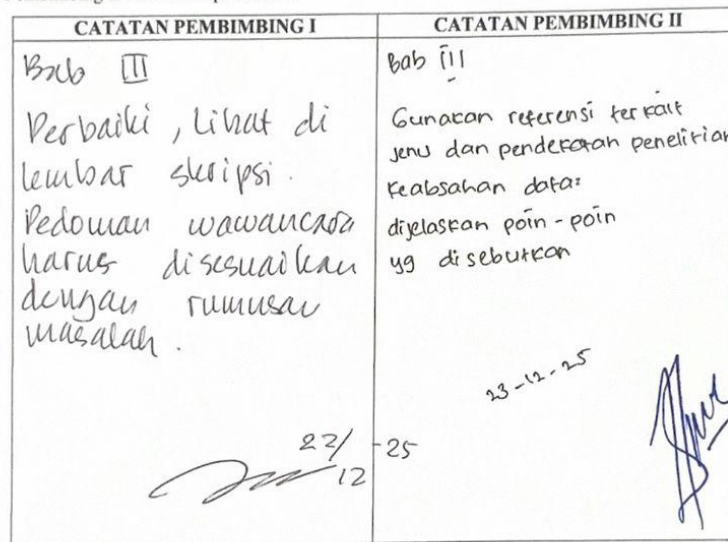 CATATAN PEMBIMBING I
Bab III
Perbaiki, Lihat di
lembar skripsi.
Pedoman wawancara
harus disesuaikan
dengan rumusan
masalah.
22/12-25
CATATAN PEMBIMBING II
Bab III
Gunakan referensi terkait
jenis dan pendekatan penelitian
keabsahan data:
dijelaskan poin-poin
yg disebutkan
23-12-25